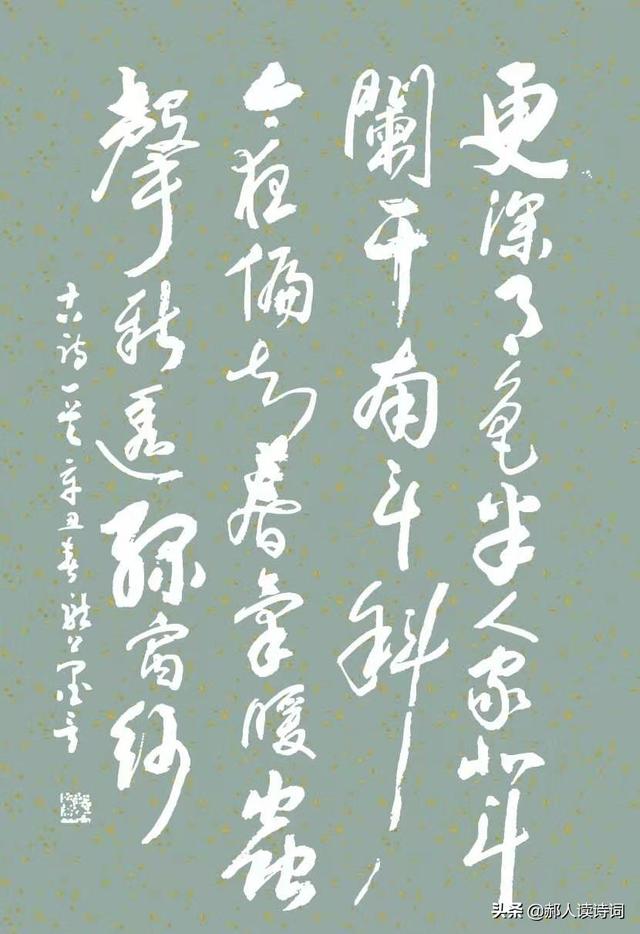 更深月色半人家北斗
闌干南斗斜
今夜偏知春氣暖蟲
聲新透綠窗紗
古詩一首辛丑春
头条 @郝人读诗词